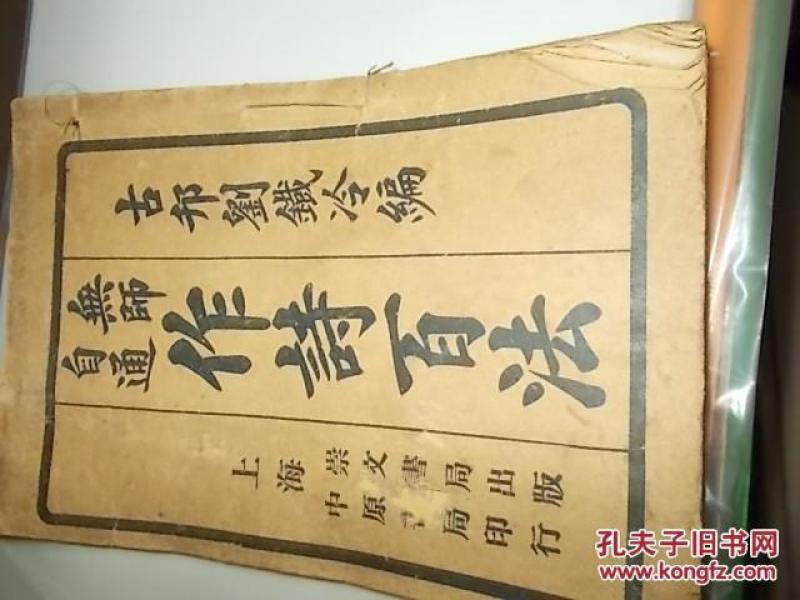 古邗劉鐵冷編
無師
自通
作詩百法
上海崇文書局出版
中原書局印行
孔夫子旧书网
www.kongfz.com